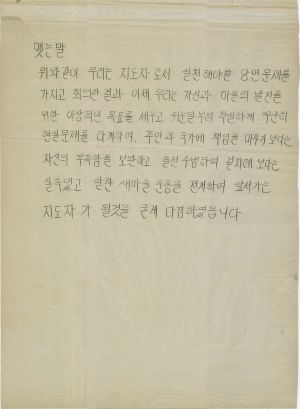 맺는말
위와같이 우리는 지도자로서 실천해야할 당면문제를
가지고 회의한결과 이제 우리는 자신과 마을의 발전을
위한 이상적인 목표를 세우고 착실하게
현실문제를 타개하며, 주민과 국가에 책임을 미루기 보다는
자신의 부족함을 보완하고 솔선수범하여 겉치레 보다는
실속있고 알찬 새마을 운동을 전개하여 앞서가는
지도자가 될것을 굳게 다짐하였읍니다